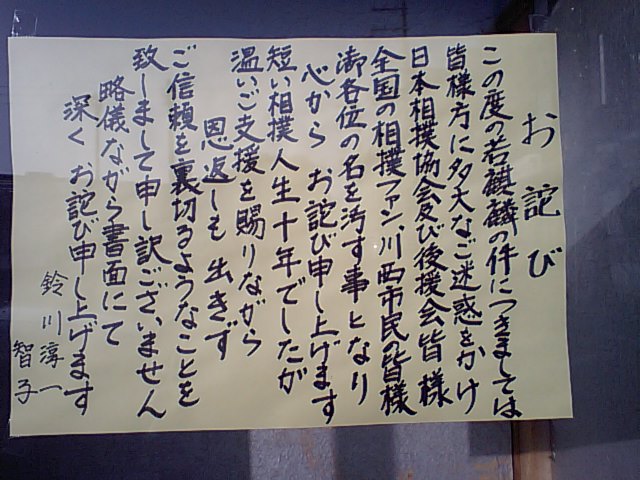 お詫び
この度の若麒麟の件につきましては
皆様方に多大なご迷惑をかけ
日本相撲協会及び後援会皆様
全国の相撲ファン、川西市民の皆様
御各位の名を汚す事となり
心から お詫び申し上げます
短い相撲人生十年でしたが
温いご支援を賜りながら
恩返しも出きず
ご信頼を裏切るようなことを
致しまして申し訳ございません
略儀ながら書面にて
深く お詫び申し上げます
鈴川淳一
智子